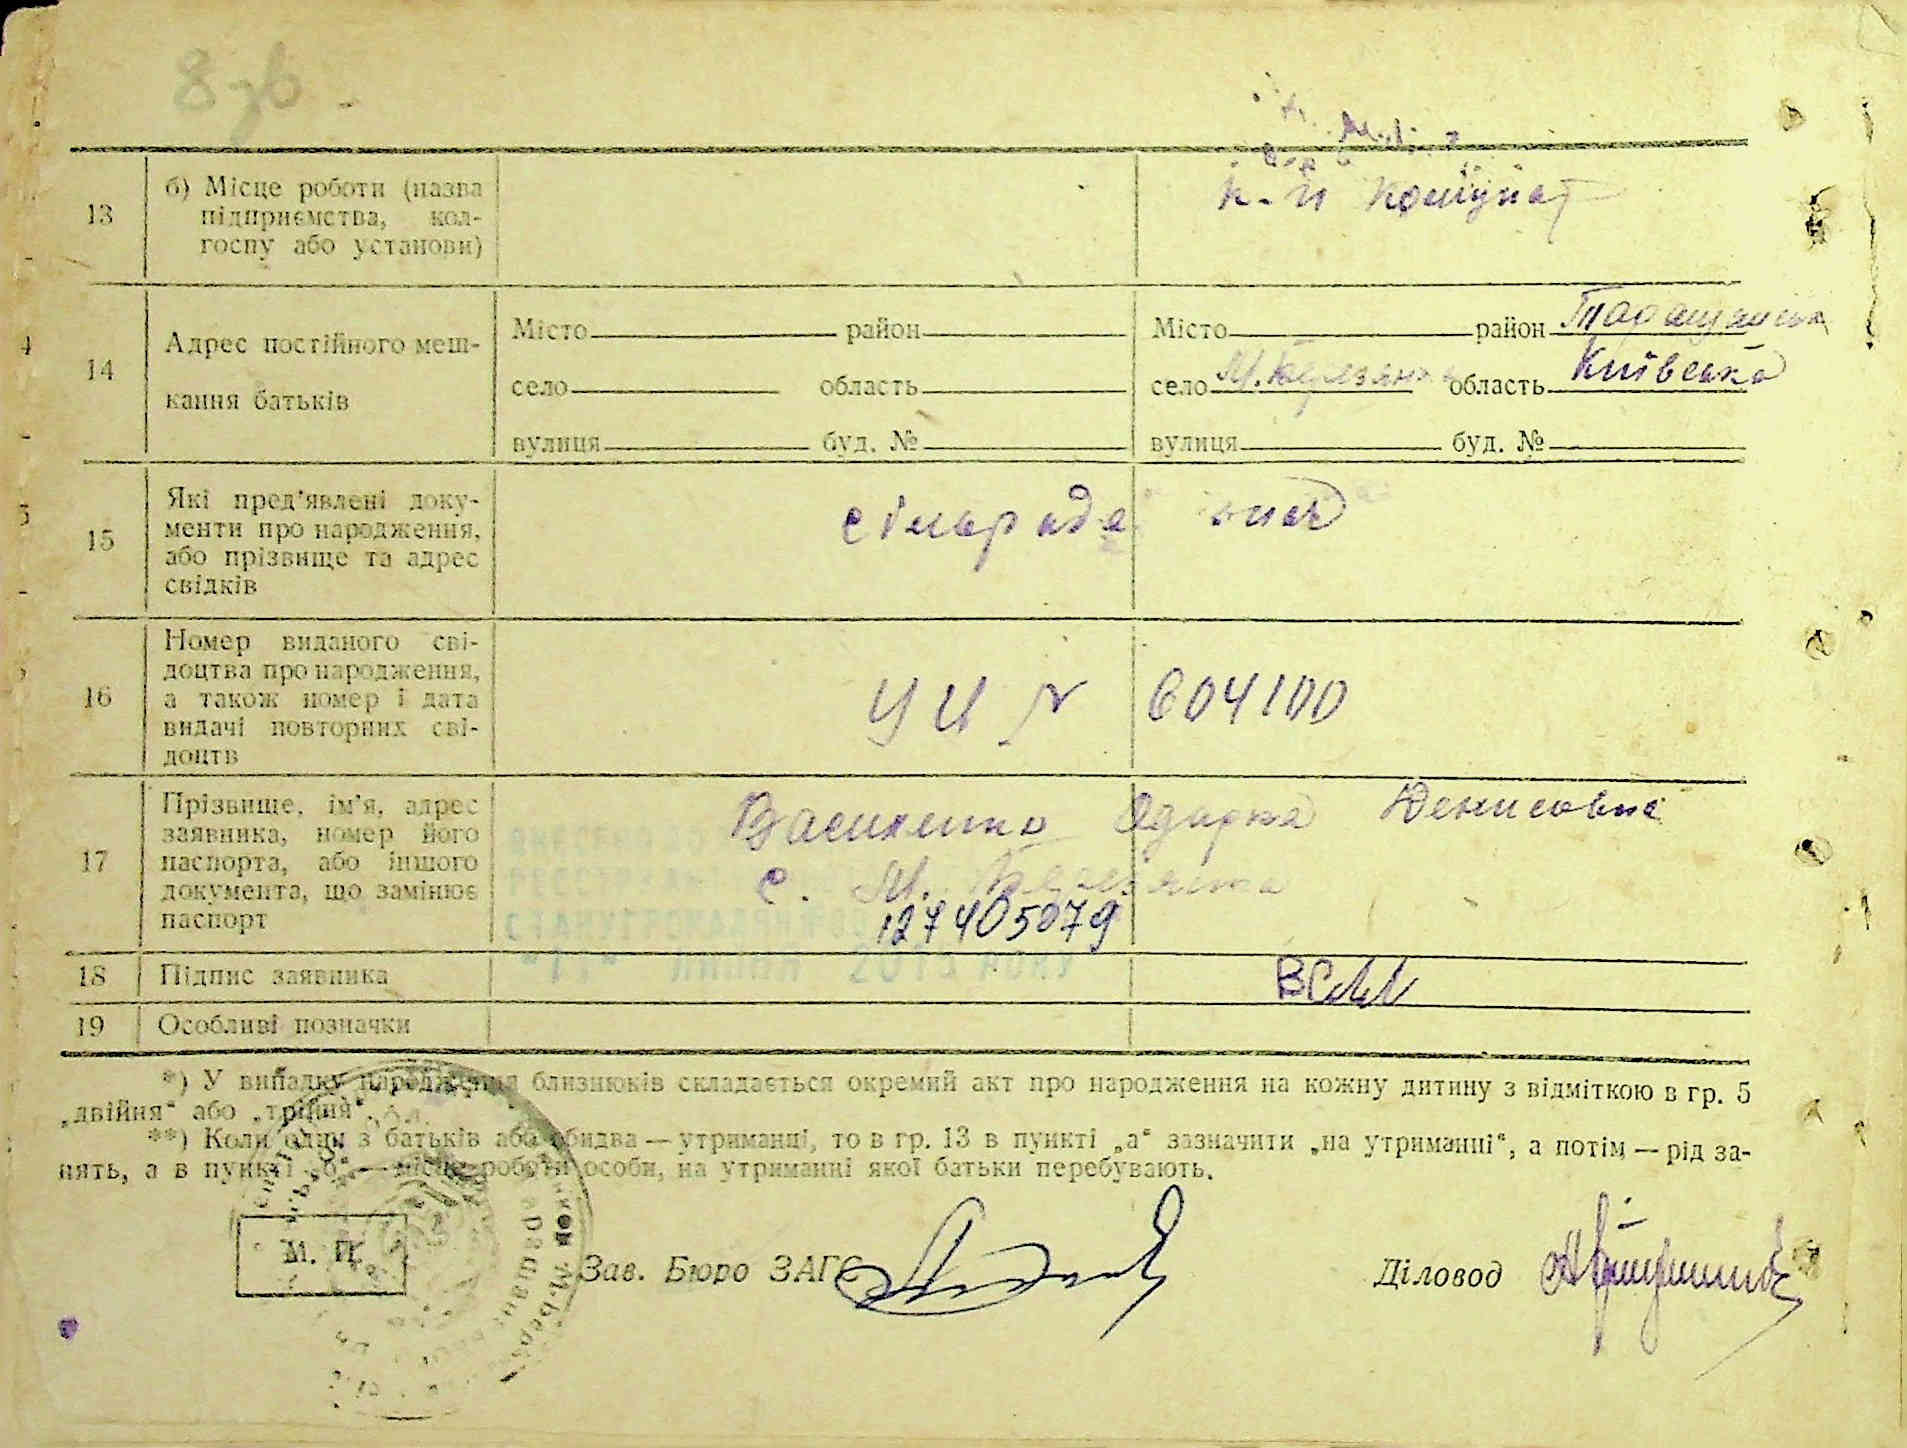 13
б) Місце роботи (назва
підприємства, кол-
госпу або установи)
к-п
14
Адрес постійного меш-
кання батьків
Місто район
село область
вулиця буд. №
Місто район Таращанськ
село М. Березянка область Київська
вулиця буд. №
15
Які пред'явлені доку-
менти про народження,
або прізвище та адрес
свідків
сільрада
16
Номер виданого сві-
доцтва про народження,
а також номер і дата
видачі повторних сві-
доцтв
УЦ № 604100
17
Прізвище, ім'я, адрес
заявника, номер його
паспорта, або іншого
документа, що замінює
паспорт
Василенко Одарка Денисовна
с. М. Березянка
127405079
18
Підпис заявника
19
Особливі позначки
*) У випадку народження близнюків складається окремий акт про народження на кожну дитину з відміткою в гр. 5
„двійня“ або „трійня“.
**) Коли один з батьків або обидва — утриманці, то в гр. 13 в пункті „а“ зазначити „на утриманні“, а потім — рід за-
нять, а в пункті „б“ — місце роботи особи, на утриманні якої батьки перебувають.
М. П.
Зав. Бюро ЗАГС
Діловод